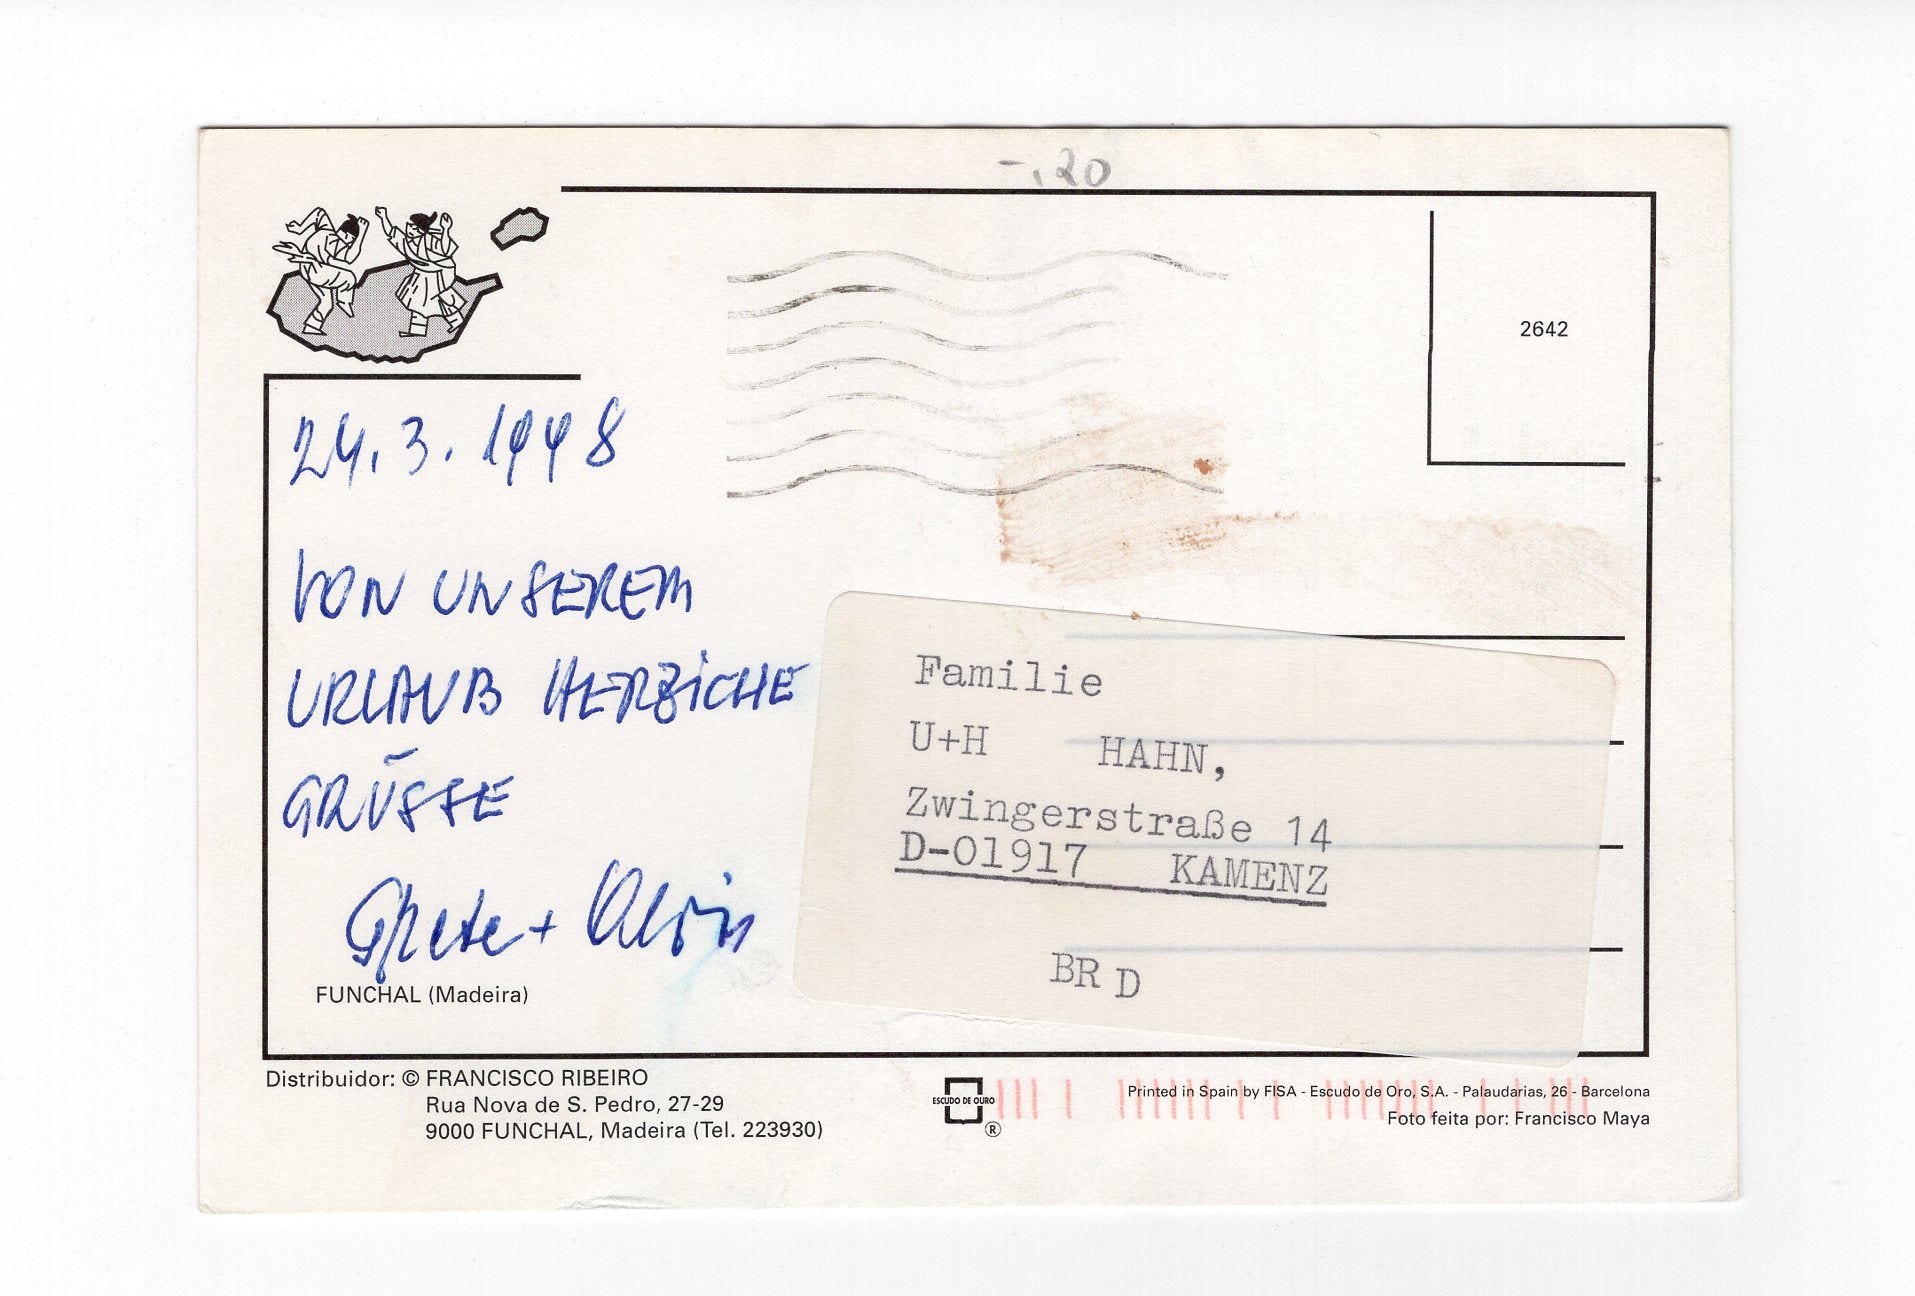 -.20
2642
24.3.1998
VON UNSEREM
URLAUB HERZICHE
GRÜSSE
Grete +
FUNCHAL (Madeira)
Familie
U+H HAHN,
Zwingerstraße 14
D-01917 KAMENZ
BRD
Distribuidor: © FRANCISCO RIBEIRO
Rua Nova de S. Pedro, 27-29
9000 FUNCHAL, Madeira (Tel. 223930)
ESCUDO DE OURO
®
Printed in Spain by FISA - Escudo de Oro, S.A. - Palaudarias, 26 - Barcelona
Foto feita por: Francisco Maya